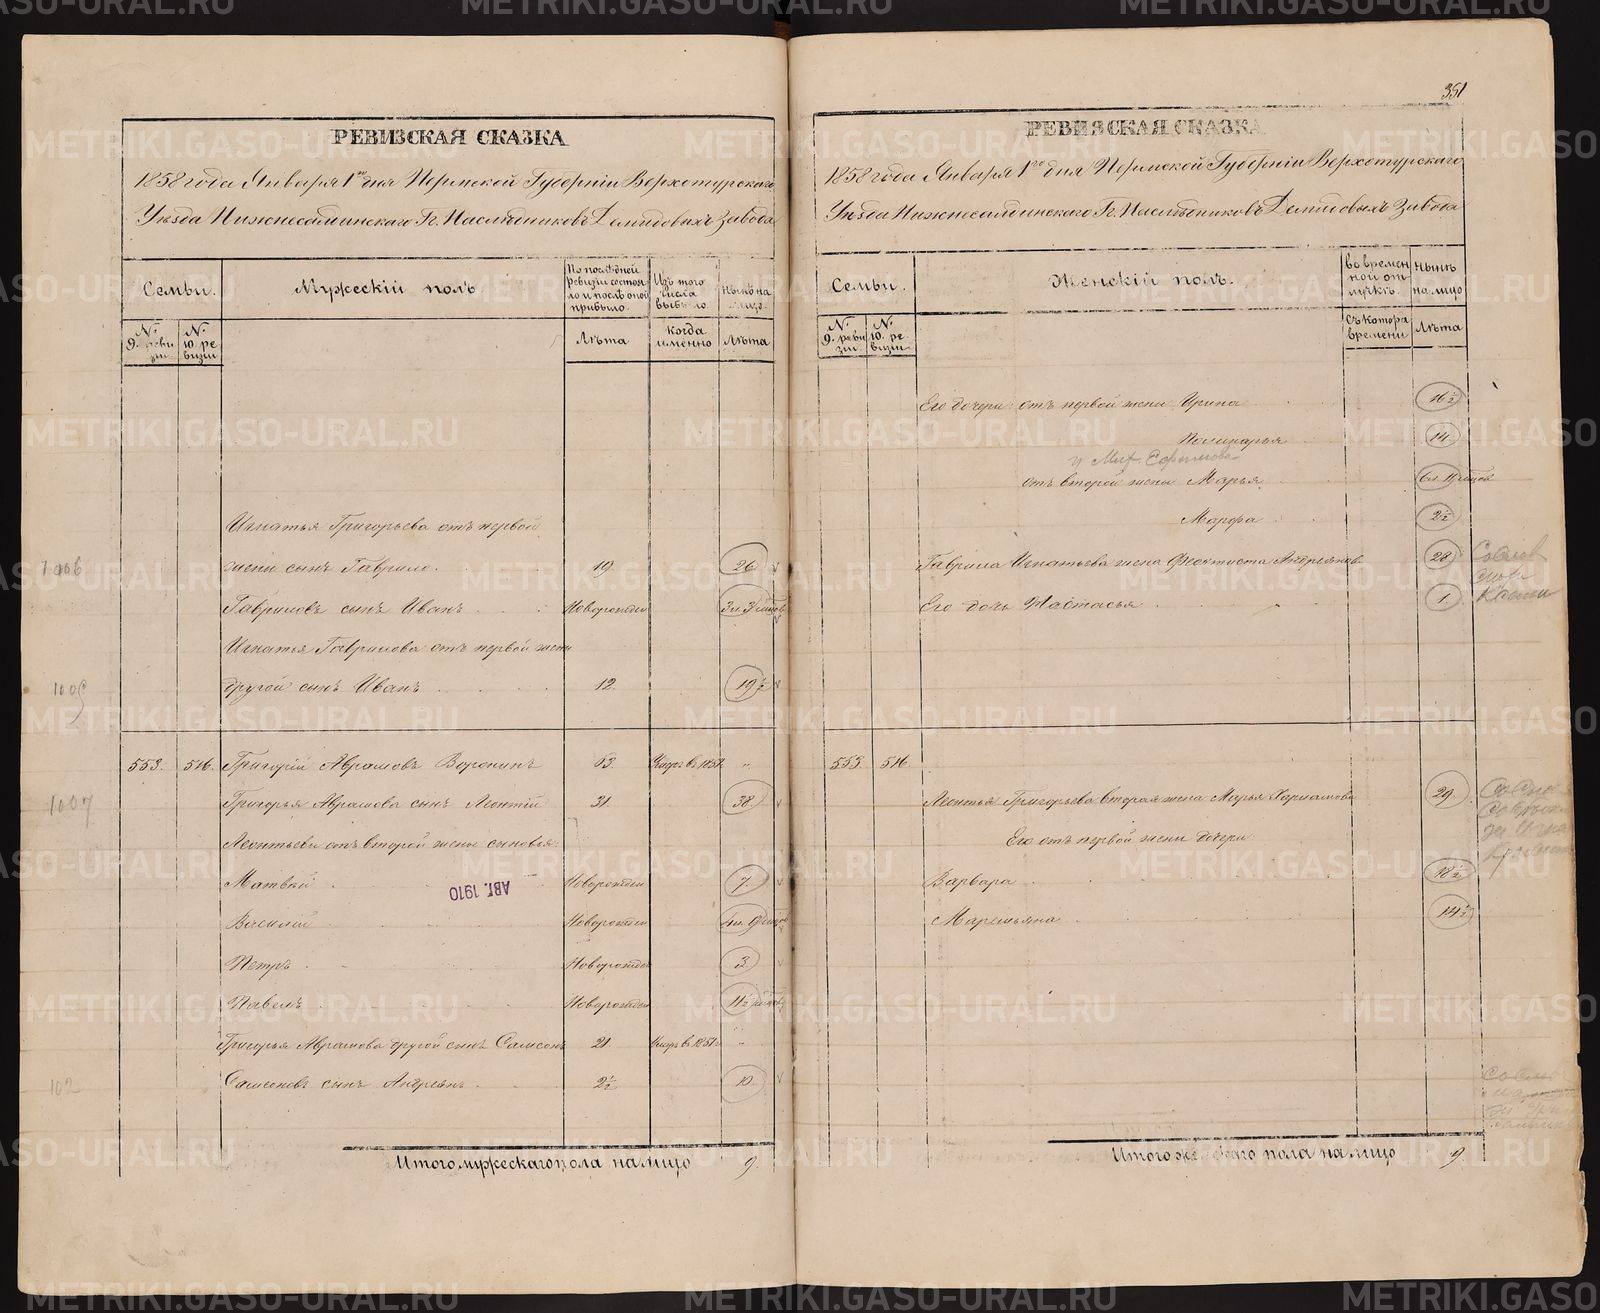 351
РЕВИЗСКАЯ СКАЗКА
1858 года Января 1го дня Пермской Губерніи Верхотурскаго
Уѣзда Нижнесалдинскаго Гг. Наслѣдниковъ Демидовыхъ Завода
Семьи.
Мужескій полъ.
По послѣдней Ревизіи состояло и послѣ оной прибыло.
Изъ того числа выбыло
Нынѣ на лицо.
№ 9. ревизіи
№ 10. ревизіи
Лѣта
когда именно
Лѣта
Игнатья Григорьева отъ первой
1006
жены сынъ Гаврило. 19 26
Гавриловъ сынъ Иванъ Новорожден 3 л. 3
Игнатья Гаврилова отъ первой жены
1005
другой сынъ Иванъ 12. 19½
553. 516. Григорій Аврамовъ Воронинъ 63. 1851 "
1007
Григорья Аврамова сынъ Леонтій 31. 38
Леонтьевы отъ второй жены сыновья:
Матвѣй Новорожден 7.
АВГ. 1910
Василій Новорожден
Петръ Новорожден 3
Павелъ Новорожден
Григорья Аврамова другой сынъ Самсонъ 21 1851 "
102
Самсоновъ сынъ Андреянъ 2½ 10.
Итого мужескаго пола на лицо 9.
РЕВИЗСКАЯ СКАЗКА
1858 года Января 1го дня Пермской Губерніи Верхотурскаго
Уѣзда Нижнесалдинскаго Гг. Наслѣдниковъ Демидовыхъ Завода
Семьи.
Женскій полъ.
во временной отлучкѣ.
Нынѣ на лицо
№ 9. ревизіи
№ 10. ревизіи
Съ котора времени
Лѣта
Его дочери: отъ первой жены Ирина 16½
14
отъ второй жены Марья
Марфа 2½
Гаврила Игнатьева жена Феоктиста Андреянов 28
Его дочь Настасья 1.
553 516
Леонтья Григорьева вторая жена Марья 29.
Его отъ первой жены дочери
Варвара 18½
Маремьяна 14½
Итого женскаго пола на лицо 9.
METRIKI.GASO-URAL.RU